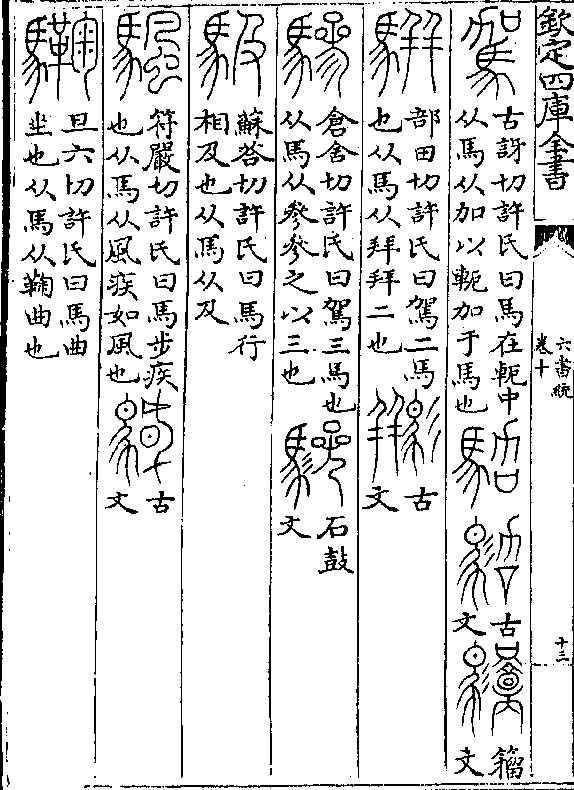 欽定四庫全書
六書統
卷十
十三
駕
古訝切許氏曰馬在軛中
从馬从加以軛加于馬也
古文
籀文
駢
部田切許氏曰駕二馬
也从馬从幷幷二也
古文
驂
倉含切許氏曰駕三馬也
从馬从參參之以三也
石鼓文
馺
蘇荅切許氏曰馬行
相及也从馬从及
颿
符嚴切許氏曰馬步疾
也从馬从風疾如風也
古文
驧
巨六切許氏曰馬曲
也从馬从鞠曲也